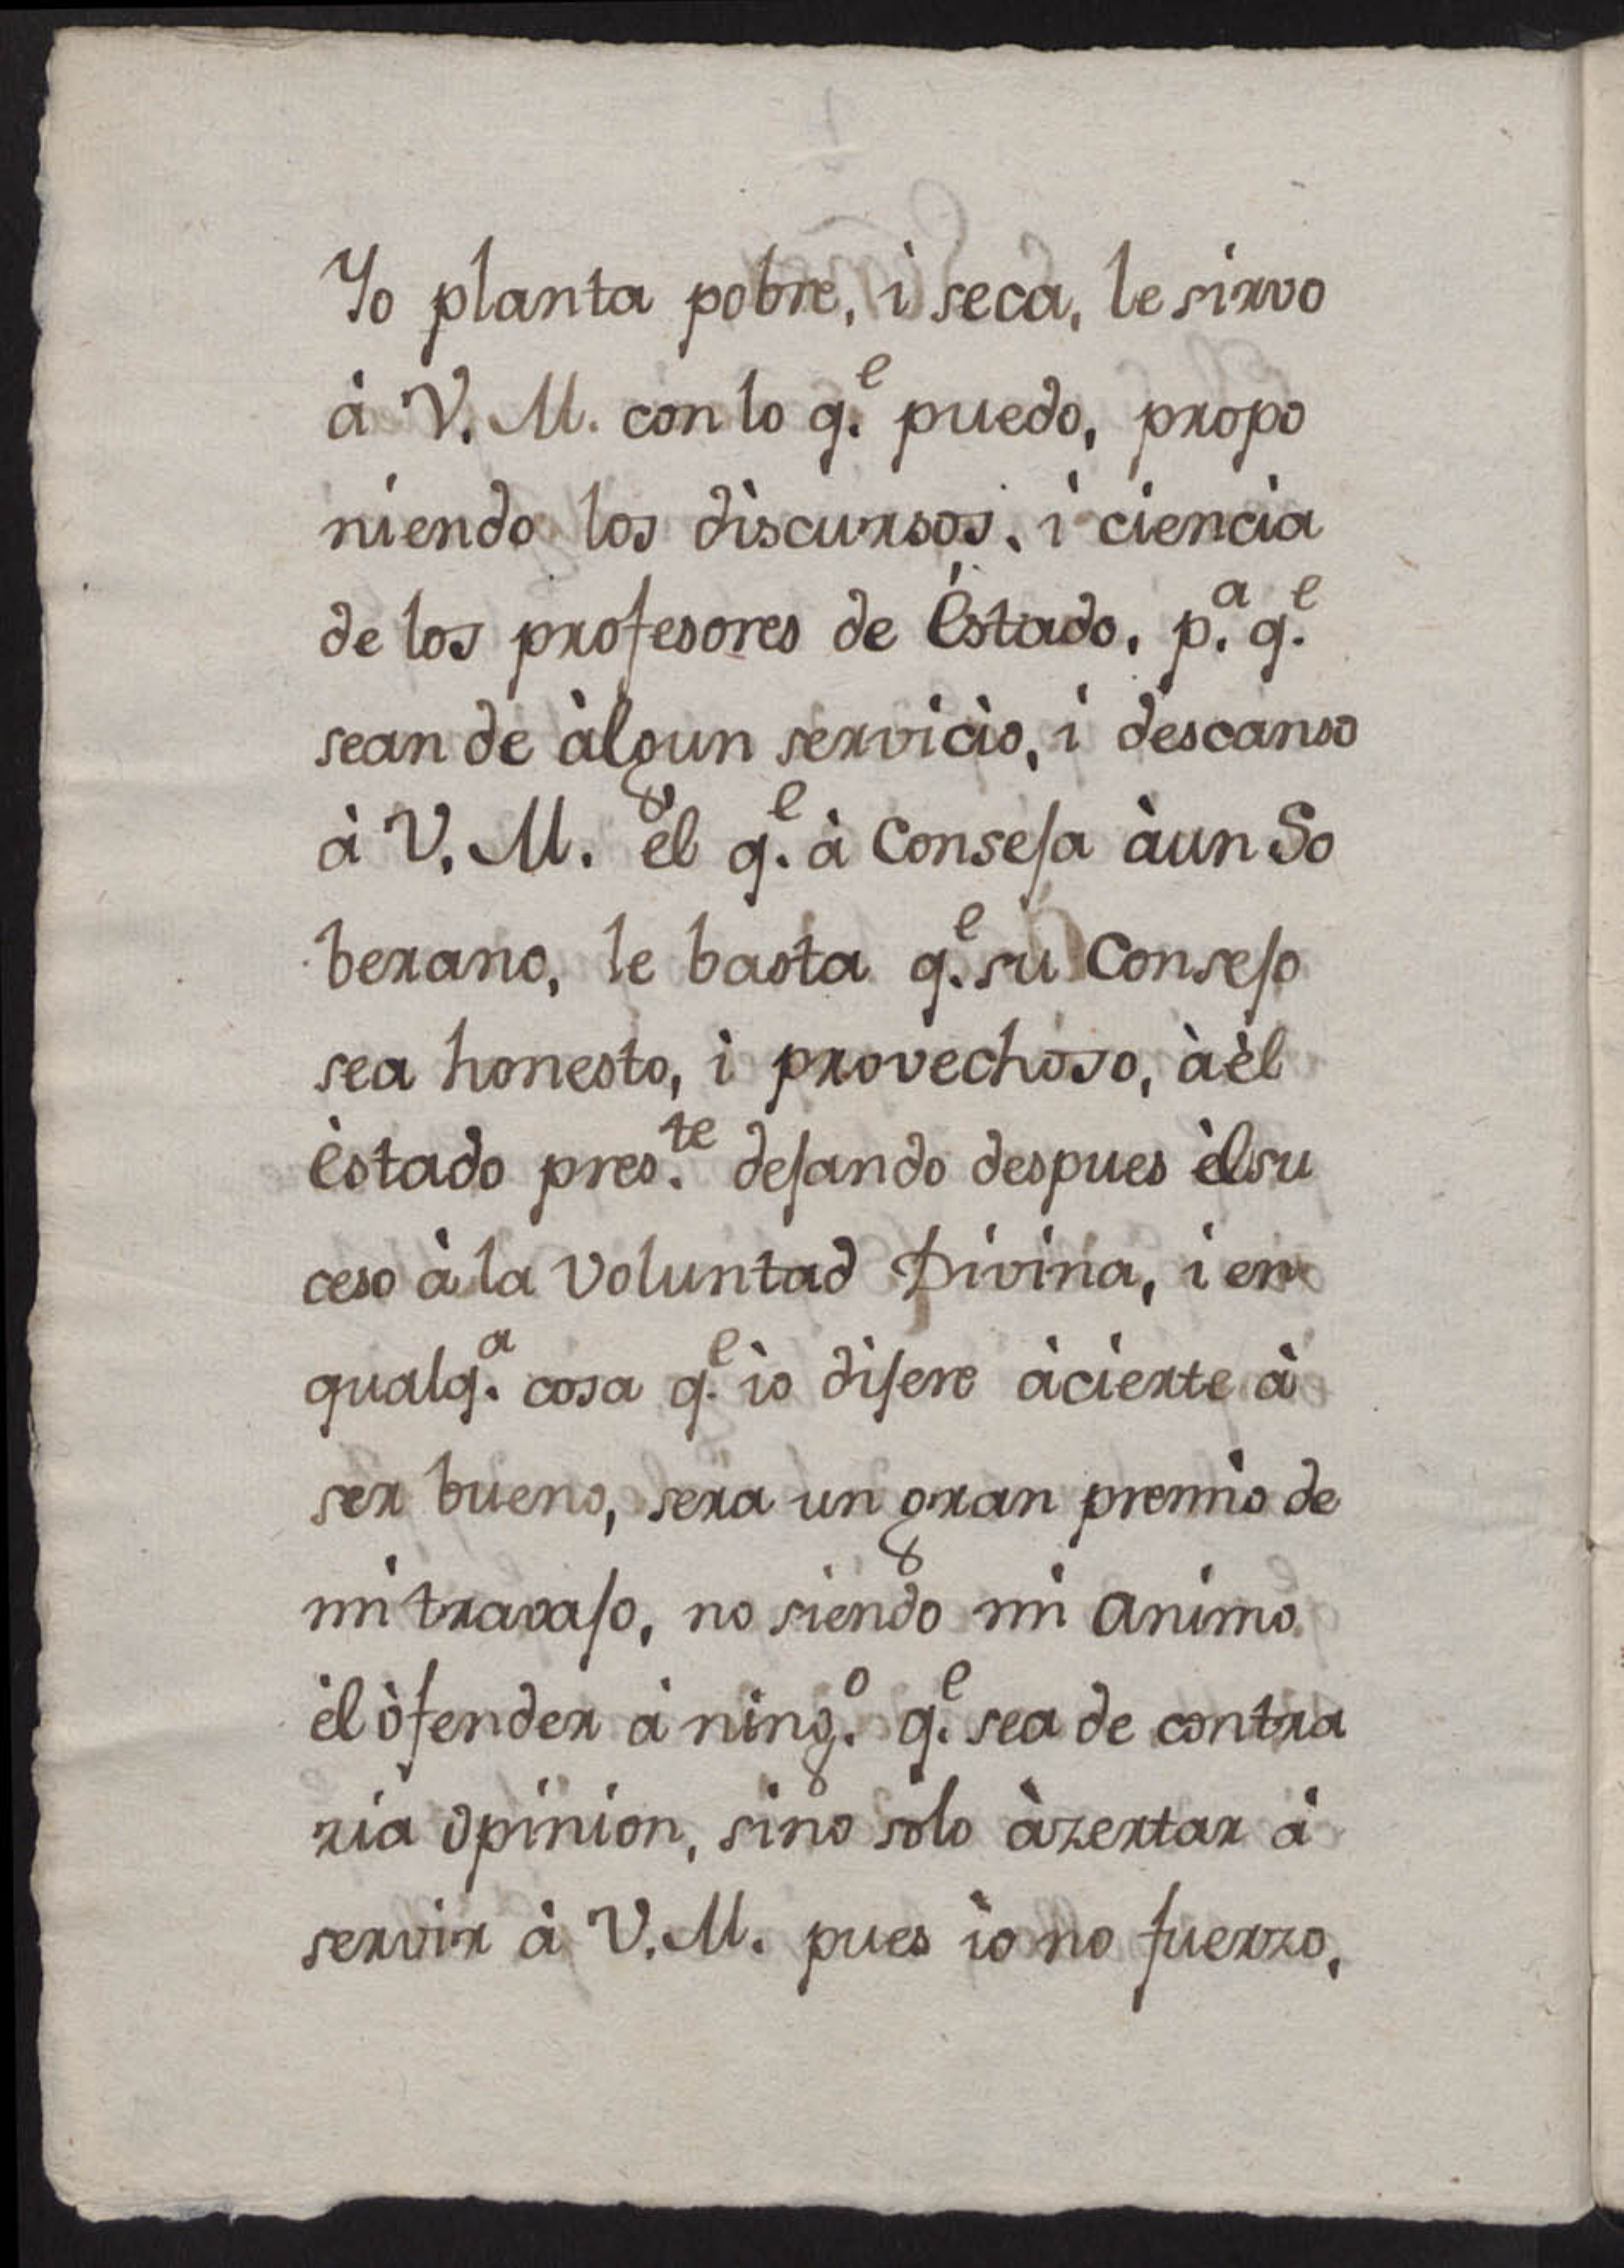 Yo planta pobre, i seca, le sirvo
à V. M. con lo q.e puedo, propo
niendo los discursos, i ciencia
de los profesores de Èstado, p.a q.e
sean de àlgun servicio, i descanso
à V. M. èl q.e à Conseja àun So
berano, le basta q.e su Consejo
sea honesto, i provechoso, àèl
Èstado pres.te dejando despues èl su
ceso à la Voluntad Divina, i en
qualq.a cosa q.e io dijere àcierte à
ser bueno, sera un gran premio de
mi travajo, no siendo mi animo
èl òfender à ning.o q.e sea de contra
ria opinion, sino solo àzertar à
servir à V. M. pues io no fuerzo,